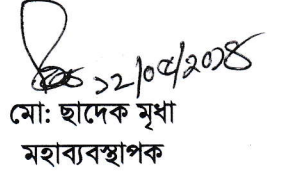 ১২/০৫/২০২৪
মো: ছাদেক মৃধা
মহাব্যবস্থাপক